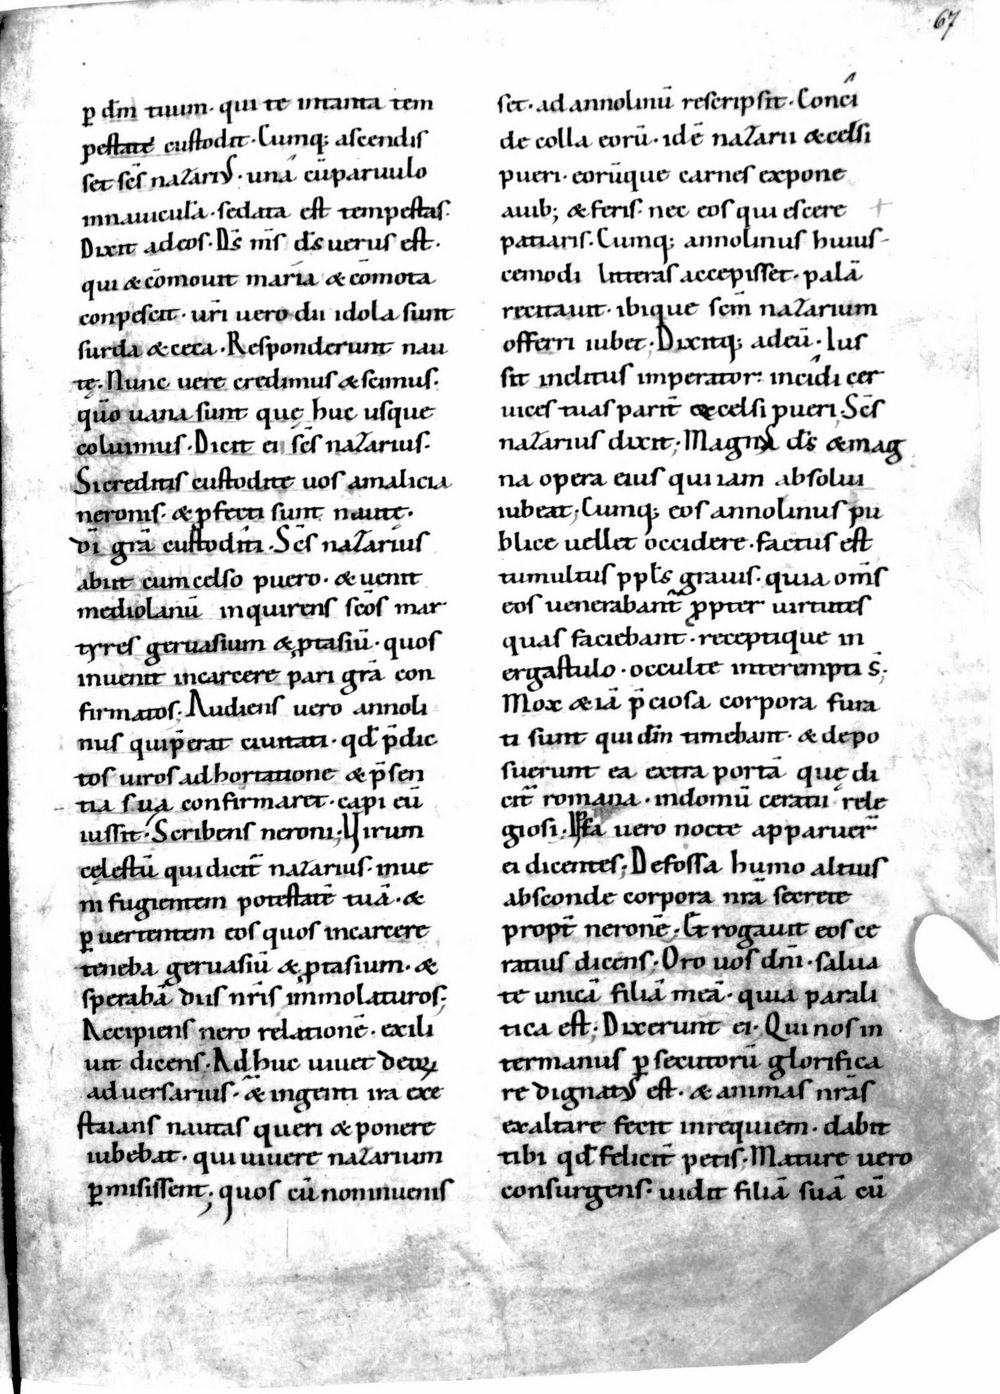 67
ꝑ dm̄ tuum · qui te intanta tem
pestate custodit · Cumq; ascendis
set scs̄ nazariꝰ · una cūparuulo
innauicula · sedata est tempestas ·
Dixit adeos · Ds̄ ms̄ ds̄ uerus est ·
qui & cōmouit maria & cōmota
conpescit · uri̅ uero dii idola sunt
surda & ceca · Responderunt nau
tę · Nunc uere credimus & scimus ·
quō uana sunt quę huc usque
coluimus · Dicit ei scs̄ nazarius ·
Sicreditis custodite uos amalicia
neronis · & ꝑfecti sunt nautę ·
dī grā custoditi · Scs̄ nazarius
abiit cumcelso puero · & uenit
mediolanū inquirens scōs mar
tyres geruasium & ꝓtasiū · quos
inuenit incarcere pari grā con
firmatos; Audiens uero annoli
nus quip̄erat ciuitati · qđ p̄dic
tos uiros adhortatione & p̄sen
tia sua confirmaret · capi eū
iussit · Scribens neroni; Uirum
cęlestū quidicit̄ nazarius · inue
ni fugientem potestatē tuā · &
ꝑuertentem eos quos incarcere
teneba geruasiū & ꝓtasium · &
sperabā diis nr̄is immolaturos;
Accipiens nero relationē · exili
uit dicens · Adhuc uiuet deoꝝ
aduersarius · & ingenti ira exe
stuans nautas queri & ponere
iubebat · qui uiuere nazarium
ꝑmisissent; quos cū noninuenis
set · ad annolinū rescripsit · Conci
de colla eorū · idē nazarii & celsi
pueri · eorūque carnes expone
auib; & feris · nec eos quiescere
patiaris · Cumq; annolinus huius-
cemodi litteras accepisset · palā
recitauit · ibique scm̄ nazarium
offerri iubet; Dixitq; adeū · Ius
sit inclitus imperator · incidi cer
uices tuas parit̄ & celsi pueri; Scs̄
nazarius dixit; Magnꝰ ds̄ & mag
na opera eius qui iam absolui
iubeat; Cumq; eos annolinus pu
blice uellet occidere · factus est
tumultus ppls̄ grauis · quia oms̄
eos uenerabant̄ ꝓpter uirtutes
quas faciebant · receptique in
ergastulo · occulte interempti s̄;
Mox & iā p̄ciosa corpora fura
ti sunt qui dm̄ timebant · & depo
suerunt ea extra portā quę di
cit̄ romana · indomū ceratii rele
giosi · Ipsa uero nocte apparuer̄
ei dicentes; Defossa humo altius
absconde corpora nrā secrete
propt̄ neronē · Et rogauit eos ce
ratius dicens · Oro uos dn̄i · salua
te unicā filiā meā · quia parali
tica est; Dixerunt ei · Qui nos in
termanus ꝑsecutorū glorifica
re dignatꝰ est · & animas nrās
exaltare fecit inrequiem · dabit
tibi qđ felicit̄ petis; Mature uero
consurgens · uidit filiā suā cū